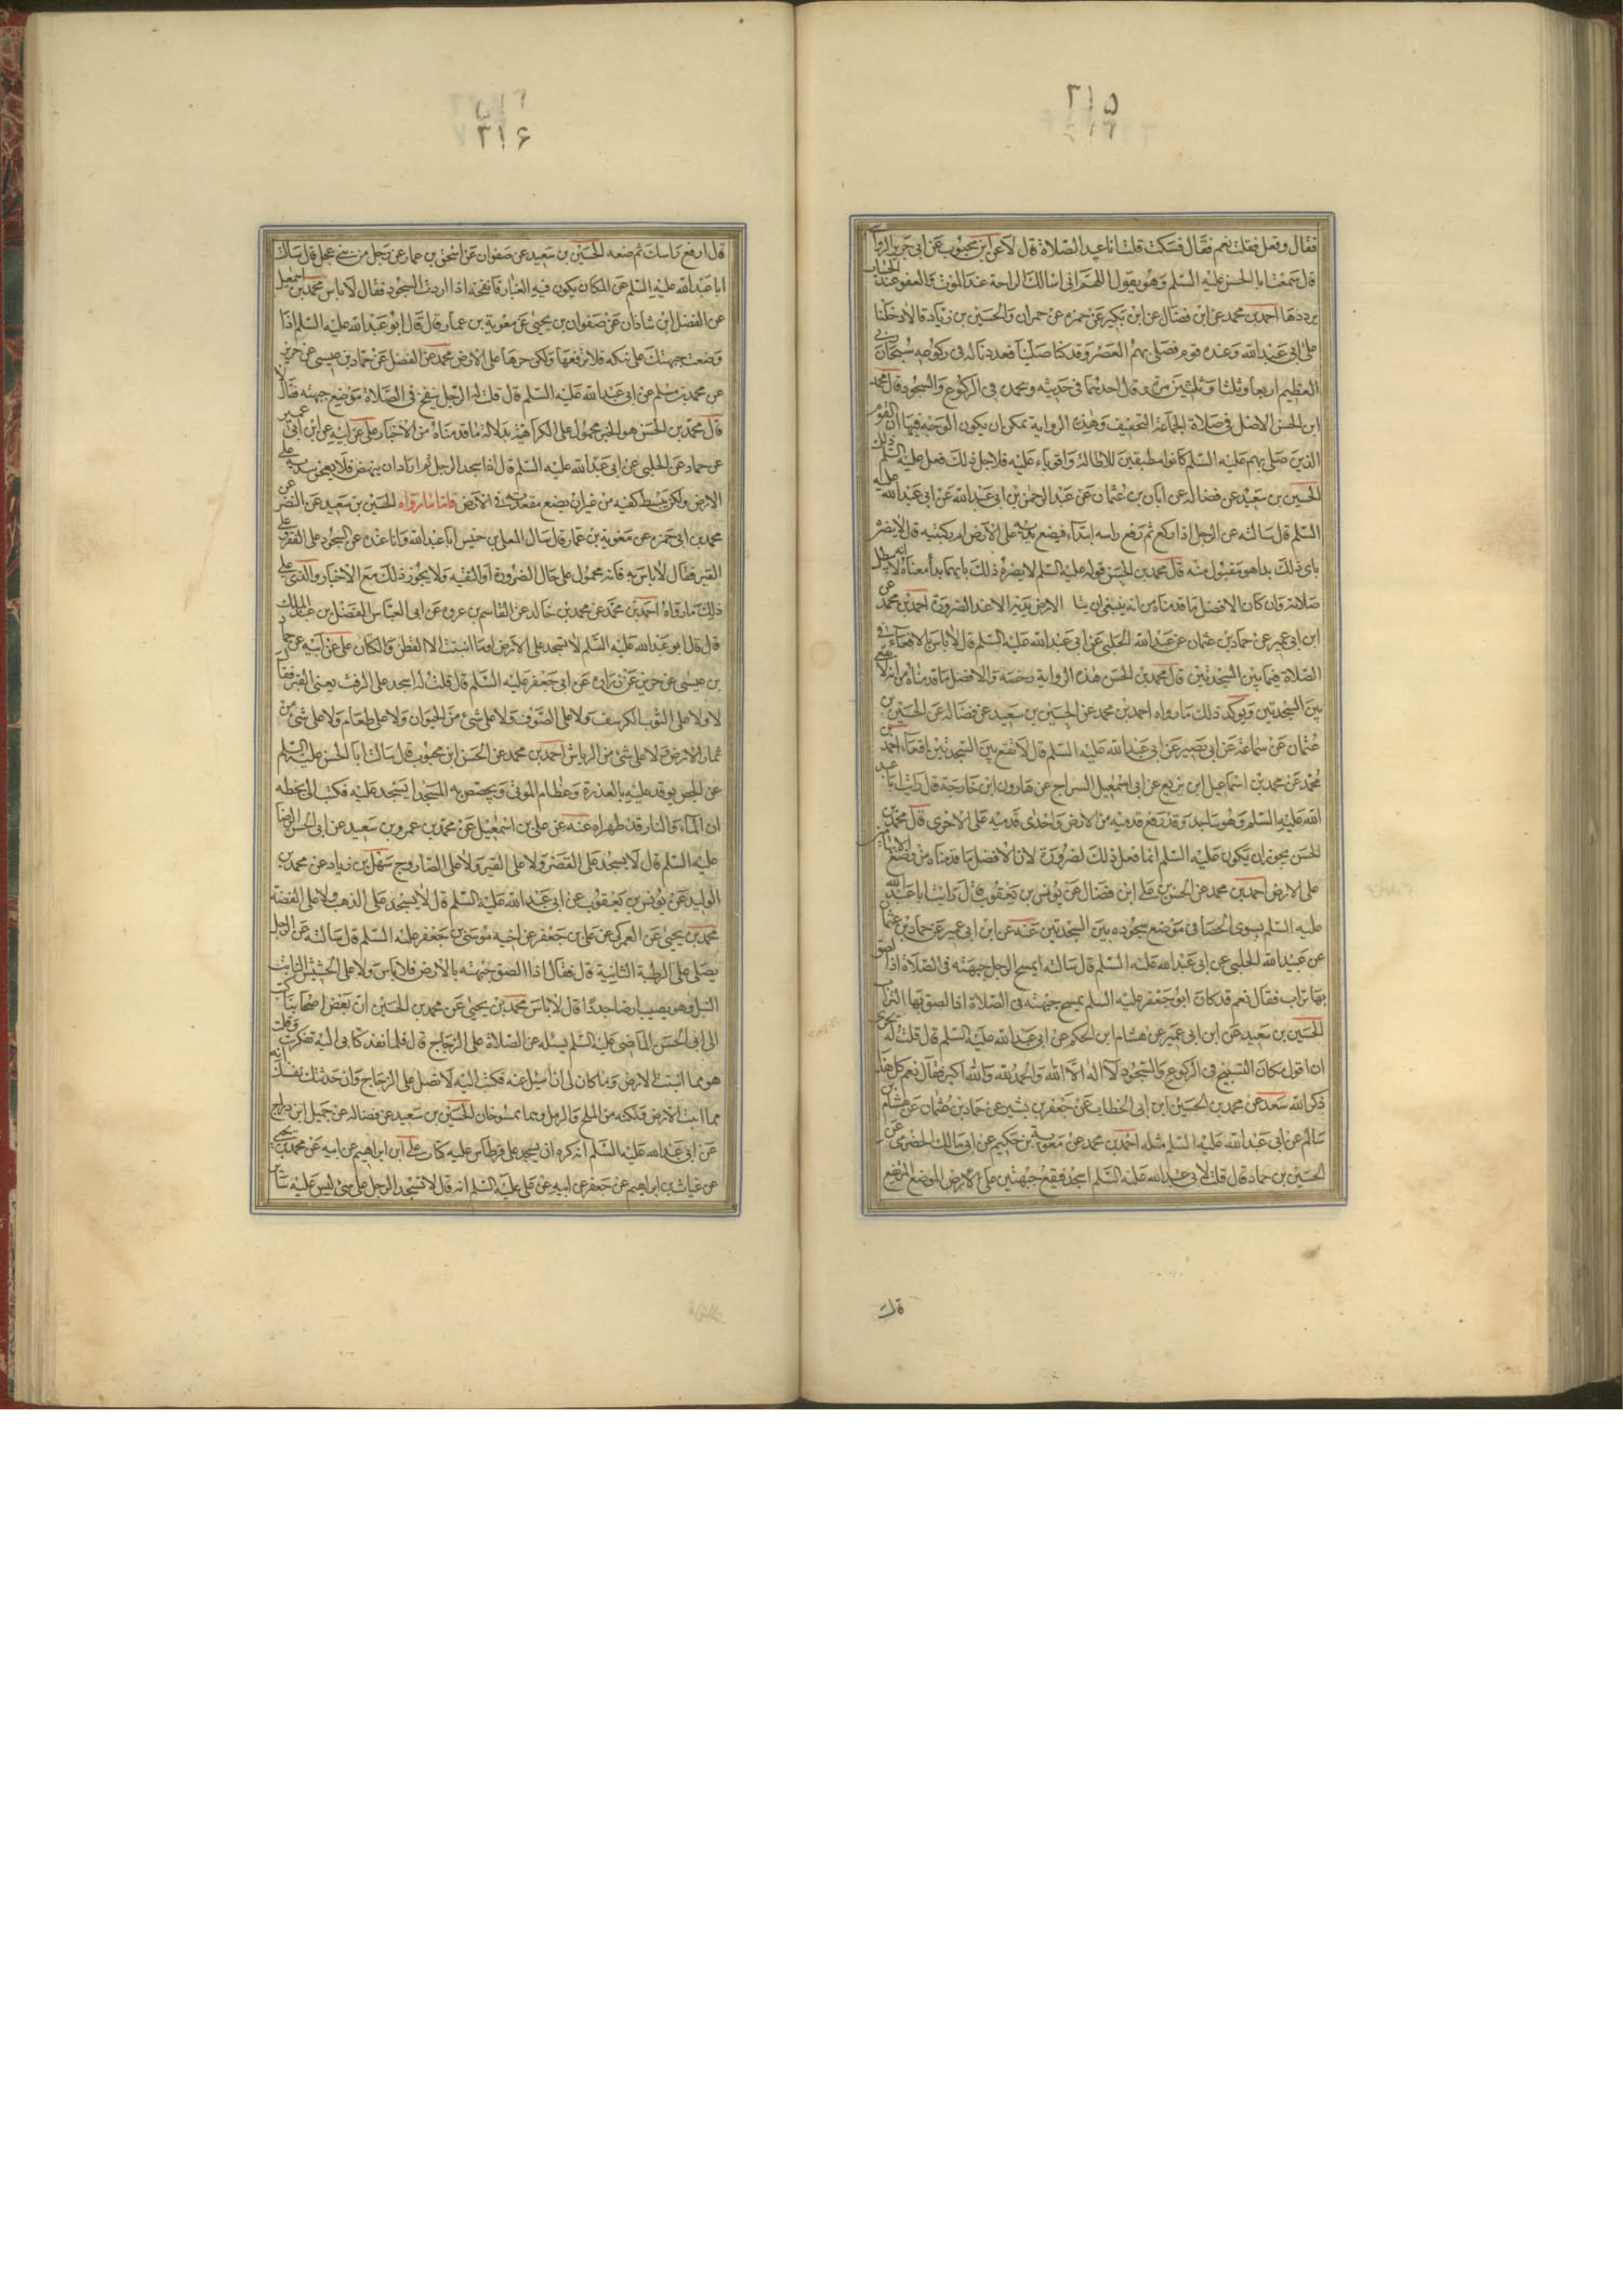 ٢١٥
فقال وفعل فقلت نعم فقال فسكت قلت اناعيد الصلاة قال لا عن ابن محبوب عن ابى جرير الرواسى
قال سمعت ابا الحسن عليه السلم وهو يقول اللهم انى اسالك الراحة عند الموت والعفو عند الحساب
يرددها احمد بن محمد عن ابن فضال عن ابن بكير عن حمزه عن حمران والحسين بن زياد قالا دخلنا
على ابى عبد الله وعنده قوم فصلى بهم العصر وقد كنا صلينا فعددنا له فى ركوعه سبحان ربى
العظيم اربعا وثلثا وثلثين مرة وقال احدهما فى حديثه وبحمده فى الركوع والسجود قال محمد
ابن الحسن الاصل فى صلاة الجماعة التخفيف وهذه الرواية يمكن ان يكون الوجه فيها ان القوم
الذين صلى بهم عليه السلم كانوا مطيقين للاطالة واقوياء عليه فلاجل ذلك فعل عليه السلم ذلك
الحسين بن سعيد عن فضاله عن ابان بن عثمان عن عبد الرحمن بن ابى عبد الله عن ابى عبد الله عليه
السلم قال سالته عن الرجل اذا ركع ثم رفع راسه ابتداء فيضع يديه على الارض ام ركبتيه قال لا يضره
باى ذلك بدا هو مقبول منه قال محمد بن الحسن قوله عليه السلم لا يضره ذلك بايهما بدأ معناه انه لا تبطل
صلاته وان كان الافضل ما قدمناه من انه ينبغى ان يتلقا الارض بيديه الا عند الضرورة احمد بن محمد عن
ابن ابى عمير عن حماد بن عثمان عن عبيد الله الحلبى عن ابى عبد الله عليه السلم قال لا باس بالاقعاء فى
الصلاة فيما بين السجدتين قال محمد بن الحسن هذه الرواية رخصه والافضل ما قدمناه من انه لا يقعى
بين السجدتين ويوكد ذلك ما رواه احمد بن محمد عن الحسين بن سعيد عن فضاله عن الحسين بن
عثمان عن سماعة عن ابى بصير عن ابى عبد الله عليه السلم قال لا تقع بين السجدتين اقعاء احمد بن
محمد عن محمد بن اسماعيل ابن بزيع عن ابى اسمعيل السراج عن هارون ابن خارجة قال رايت ابا عبد
الله عليه السلم وهو ساجد وقد رفع قدميه من الارض واحدى قدميه على الاخرى قال محمد بن
الحسن يجوز ان يكون عليه السلم انما فعل ذلك لضرورة لان الافضل ما قدمناه من وضع الابهامين
على الارض احمد بن محمد عن الحسن بن على ابن فضال عن يونس بن يعقوب قال رايت ابا عبد الله
عليه السلم يسوى الحصا فى موضع سجوده بين السجدتين عنه عن ابن ابى عمير عن حماد بن عثمان
عن عبيد الله الحلبى عن ابى عبد الله عليه السلم قال سالته ايمسح الرجل جبهته فى الصلاة اذا لصق
بها تراب فقال نعم قد كان ابو جعفر عليه السلم يمسح جبهته فى الصلاة اذا لصق بها التراب
الحسين بن سعيد عن ابن ابى عمير عن هشام ابن الحكم عن ابى عبد الله عليه السلم قال قلت له يجزى
ان اقول مكان التسبيح فى الركوع والسجود لا اله الا الله والحمد لله والله اكبر فقال نعم كل هذا
ذكر الله سعد عن محمد بن الحسين ابن ابى الخطاب عن جعفر بن بشير عن حماد بن عثمان عن هشام بن
سالم عن ابى عبد الله عليه السلم مثله احمد بن محمد عن معوية بن حكيم عن ابى مالك الحضرمى عن
الحسين بن حماد قال قلت لابى عبد الله عليه السلم اسجد فتقع جبهتى على الارض الموضع المرتفع
قال
٢١٦
قال ارفع راسك ثم ضعه الحسين بن سعيد عن صفوان عن اسحق بن عمار عن رجل من بنى عجل قال سالت
ابا عبد الله عليه السلم عن المكان يكون فيه الغبار فانفخه اذا اردت السجود فقال لا باس محمد بن اسمعيل
عن الفضل ابن شاذان عن صفوان بن يحيى عن معوية بن عمار قال قال ابو عبد الله عليه السلم اذا
وضعت جبهتك على نبكه فلا ترفعها ولكن جرها على الارض محمد عن الفضل عن حماد بن عيسى عن حريز
عن محمد بن مسلم عن ابى عبد الله عليه السلم قال قلت له الرجل ينفخ فى الصلاة موضع جبهته فقال لا
قال محمد بن الحسن هو الخبر محمول على الكراهية بدلالة ما قدمناه من الاخبار على عن ابيه عن ابن ابى عمير
عن حماد عن الحلبى عن ابى عبد الله عليه السلم قال اذا سجد الرجل ثم اراد ان ينهض فلا يعجن بيديه على
الارض ولكن يبسط كفيه من غير ان يضع مقعدته فى الارض فاما ما رواه الحسين بن سعيد عن النضر عن
محمد بن ابى حمزه عن معوية بن عمار قال سال المعلى بن خنيس ابا عبد الله وانا عنده عن السجود على القفر وعلى
القير فقال لا باس به فانه محمول على حال الضرورة او التقيه ولا يجوز ذلك مع الاختيار والذى على
ذلك ما رواه احمد بن محمد عن محمد بن خالد عن القاسم بن عروه عن ابى العباس الفضل بن عبد الملك
قال قال ابو عبد الله عليه السلم لا تسجد على الارض او ما انبتت الا القطن والكتان على عن ابيه عن حماد
بن عيسى عن حريز عن زراره عن ابى جعفر عليه السلم قال قلت له اسجد على الزفت يعنى القير فقال
لا ولا على الثوب الكرسف ولا على الصوف ولا على شئ من الحيوان ولا على طعام ولا على شئ من
ثمار الارض ولا على شئ من الرياش احمد بن محمد عن الحسن ابن محبوب قال سالت ابا الحسن عليه السلم
عن الجص يوقد عليه بالعذرة وعظام الموتى ويجصص به المسجد ايسجد عليه فكتب الى بخطه
ان الماء والنار قد طهراه عنه عن على بن اسمعيل عن محمد بن عمرو بن سعيد عن ابى الحسن الرضا
عليه السلم قال لا يسجد على القفر ولا على القير ولا على الصاروج سهل بن زياد عن محمد بن
الوليد عن يونس بن يعقوب عن ابى عبد الله عليه السلم قال لا يسجد على الذهب ولا على الفضة
محمد بن يحيى عن العمركى عن على بن جعفر عن اخيه موسى بن جعفر عليه السلم قال سالته عن الرجل
يصلى على الرطبة الثانية قال فقال اذا الصق جبهته بالارض فلا باس ولا على الحشيش الثابت
النيل وهو يصيب ارضا جددا قال لا باس محمد بن يحيى عن محمد بن الحسين ان بعض اصحابنا كتب
الى ابى الحسن الماضى عليه السلم يسئله عن الصلاة على الزجاج قال فلما نفد كتابى اليه تفكرت وقلت
هو مما انبتت الارض وما كان لى ان اسئل عنه فكتب اليه لا تصل على الزجاج وان حدثتك نفسك انه
مما انبتت الارض ولكنه من الملح والرمل وهما ممسوخان الحسين بن سعيد عن فضاله عن جميل ابن دراج
عن ابى عبد الله عليه السلم انه كره ان يسجد على قرطاس عليه كتاب على ابن ابراهيم عن ابيه عن محمد بن يحيى
عن غياث بن ابراهيم عن جعفر عن ابيه عن على عليه السلم انه قال لا يسجد الرجل على شئ ليس عليه سائر